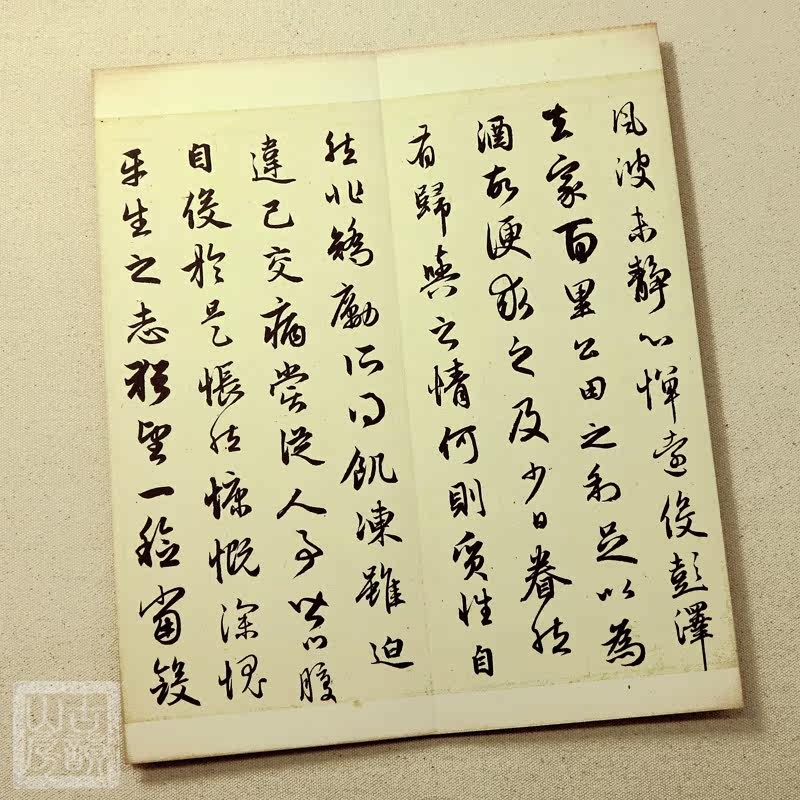 風波未靜心憚遠役彭澤
去家百里公田之利足以為
酒故便求之及少日眷然
有歸與之情何則質性自
然非矯勵所得飢凍雖迫
違己交病嘗從人事皆口腹
自役於是悵然慷慨深愧
平生之志猶望一稔當斂